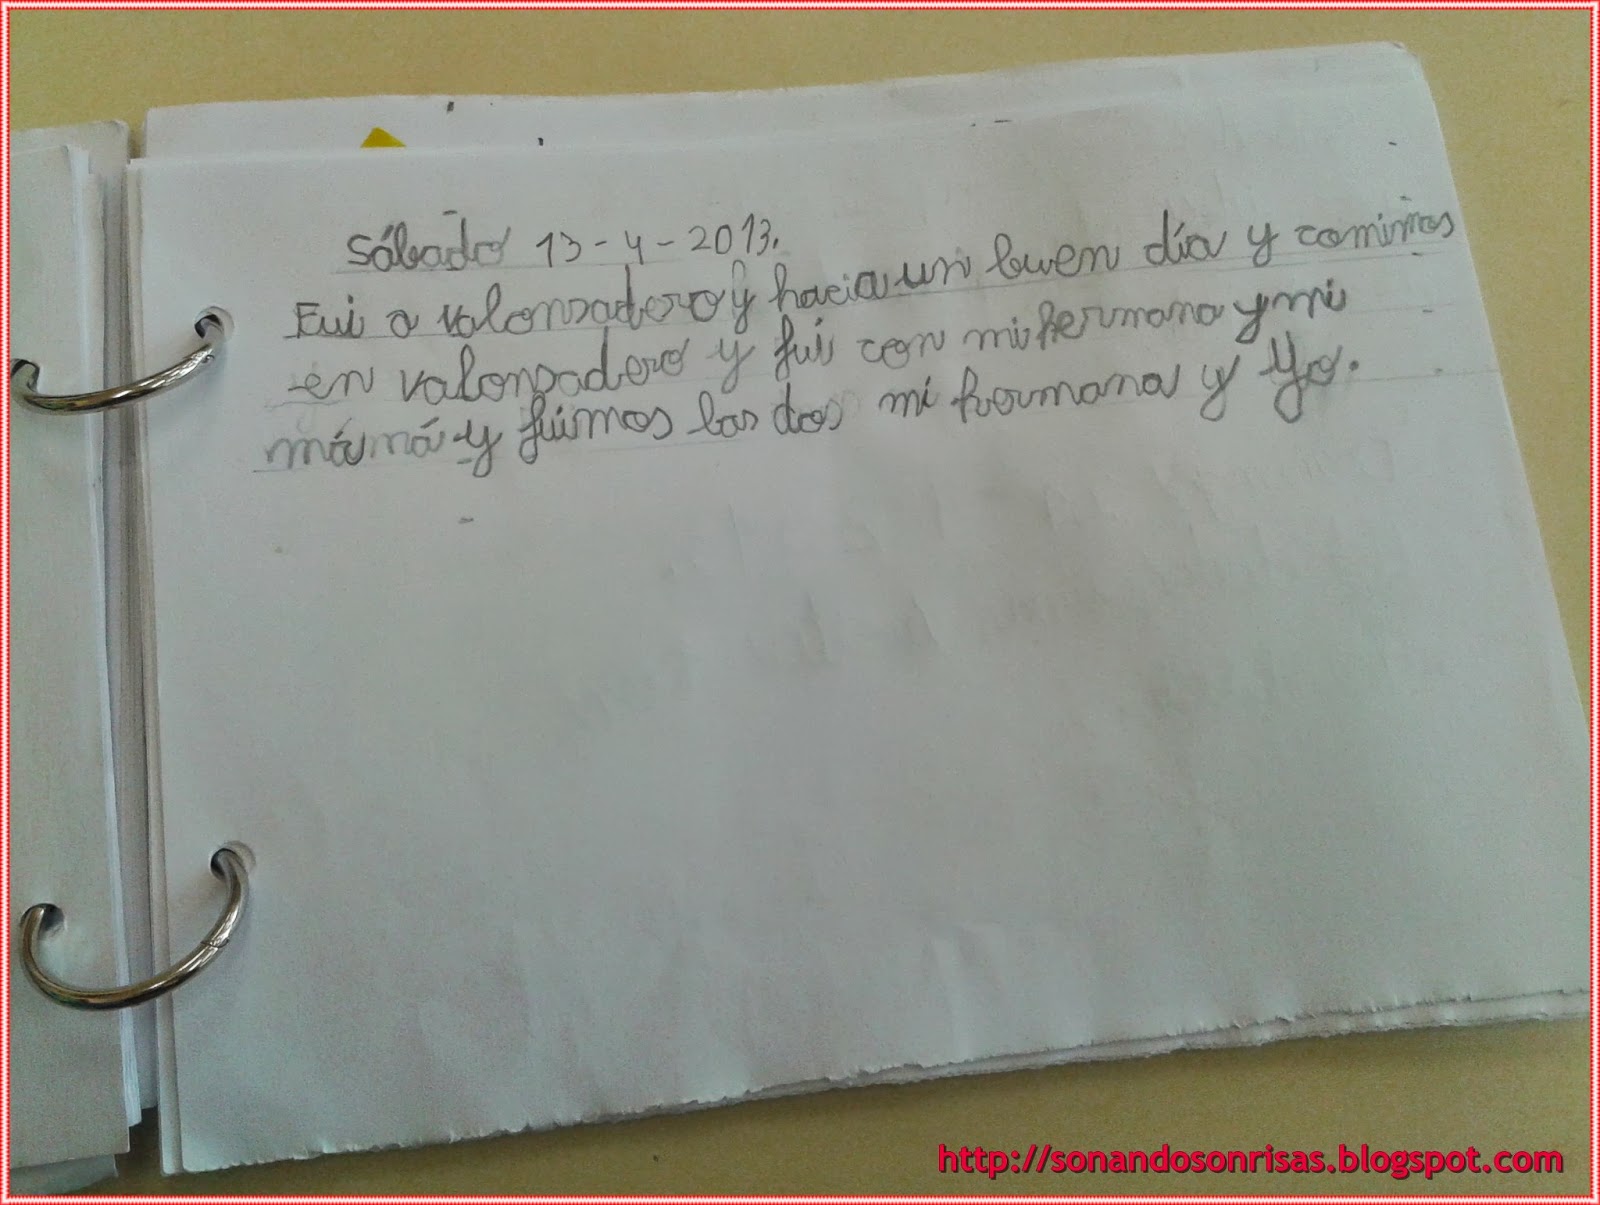 Sábado 13-4-2013.
Fui a valonsadero y hacia un buen día y comimos
en valonsadero y fúi con mi hermana y mi
mámá y fúimos las dos mi hermana y Yo.
http://sonandosonrisas.blogspot.com